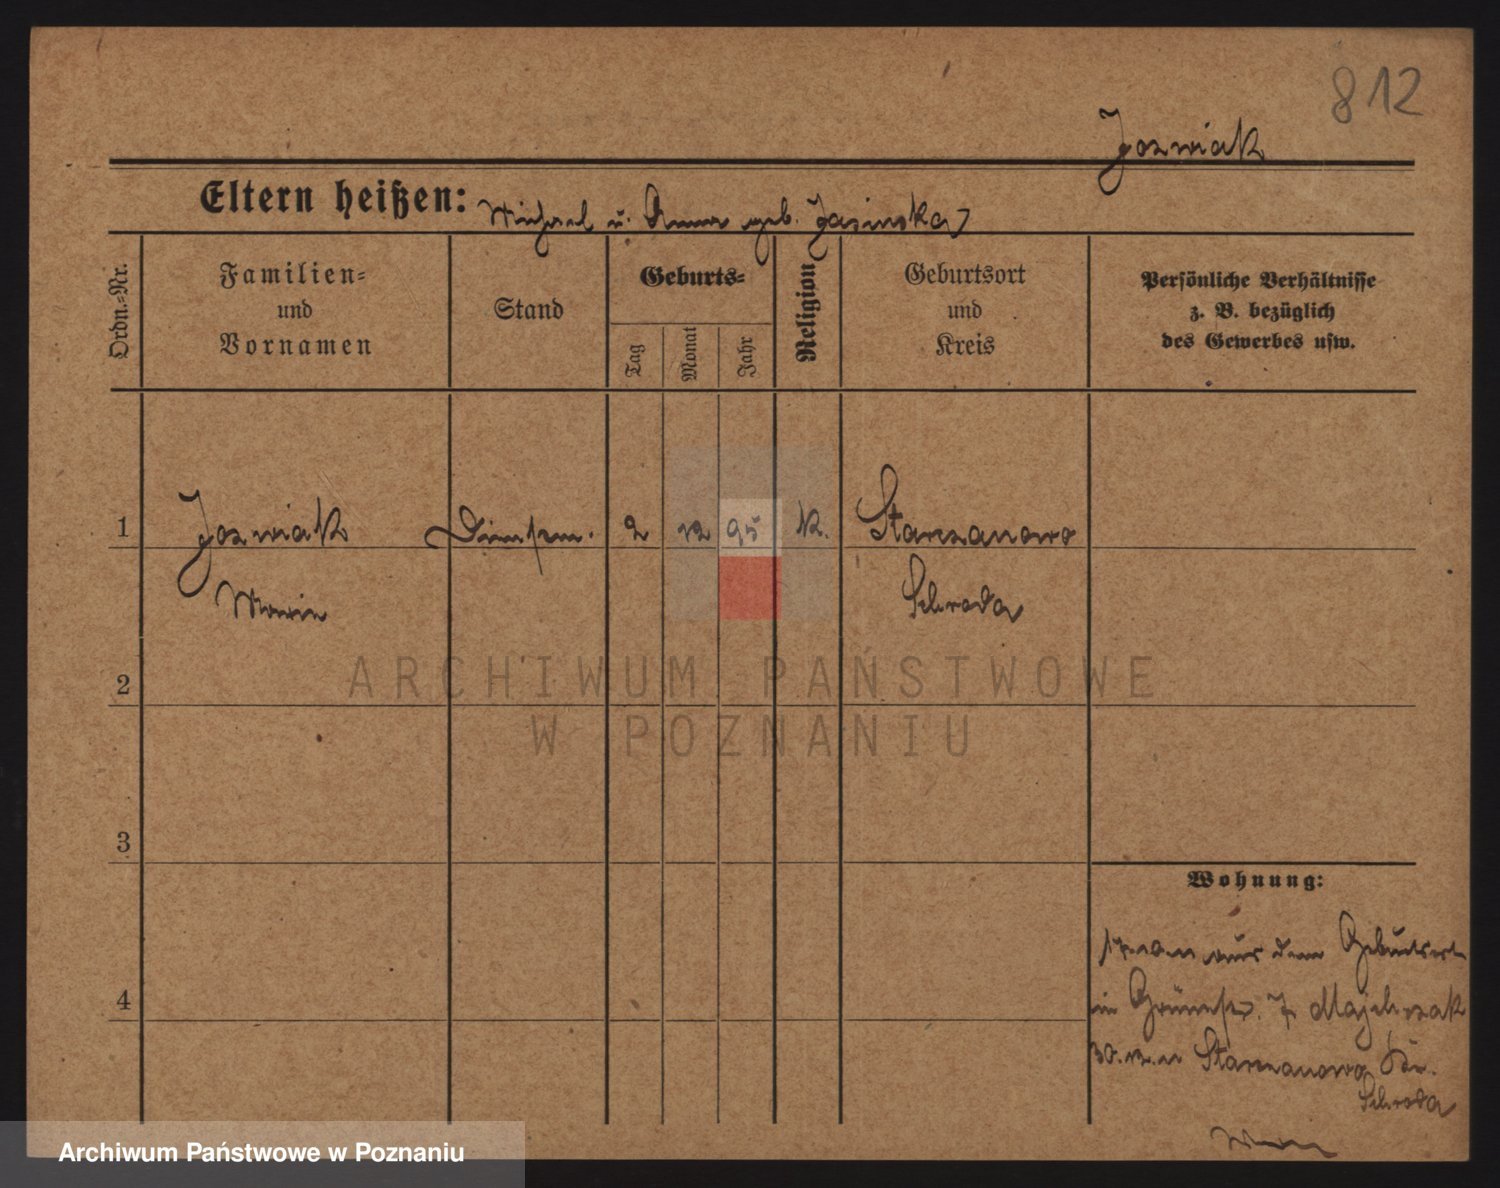 812
Jozwiak
Eltern heißen: Michael u. Anna geb. Jasinska
Ordn.=Nr.
Familien=
und
Vornamen
Stand
Geburts=
Tag
Monat
Jahr
Religion
Geburtsort
und
Kreis
Persönliche Verhältnisse
z. B. bezüglich
des Gewerbes usw.
1
Jozwiak
Marie
Dienstm.
2
12
95
K.
Starczanowo
Schroda
2
3
4
Wohnung:
aus dem Geburtsort
in Grünestr. 7 Majchrzak
30.12.11 Starczanowo Kr.
Schroda
ARCHIWUM PAŃSTWOWE
W POZNANIU
Archiwum Państwowe w Poznaniu